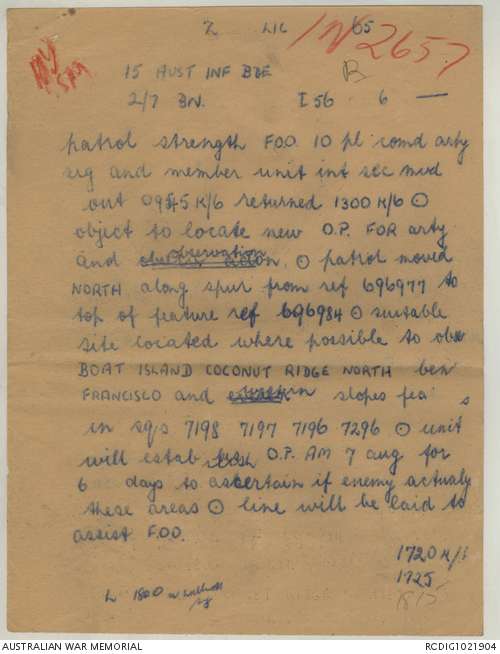 Z LIC 65
IN 2657
15 AUST INF BDE B
2/7 BN. I 56 6 —
patrol strength F.O.O. 10 pl comd arty
sig and member unit int sec mvd
out 0945 K/6 returned 1300 K/6 ⊙
object to locate new O.P. FOR arty
and observation ⊙ patrol moved
NORTH along spur from ref 696977 to
top of feature ref 696984 ⊙ suitable
site located where possible to obse
BOAT ISLAND COCONUT RIDGE NORTH ben
FRANCISCO and western slopes fea s
in sqs 7198 7197 7196 7296 ⊙ unit
will estab O.P. AM 7 aug for
6 days to ascertain if enemy actualy
these areas ⊙ line will be laid to
assist F.O.O.
1720 K/6
1725
1815
L 1800
AUSTRALIAN WAR MEMORIAL
RCDIG1021904